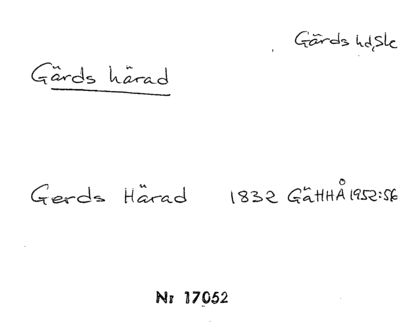 Gärds hd, Sk
Gärds härad
Gerds Härad 1832 GäHHÅ 1952:56
Nr 17052